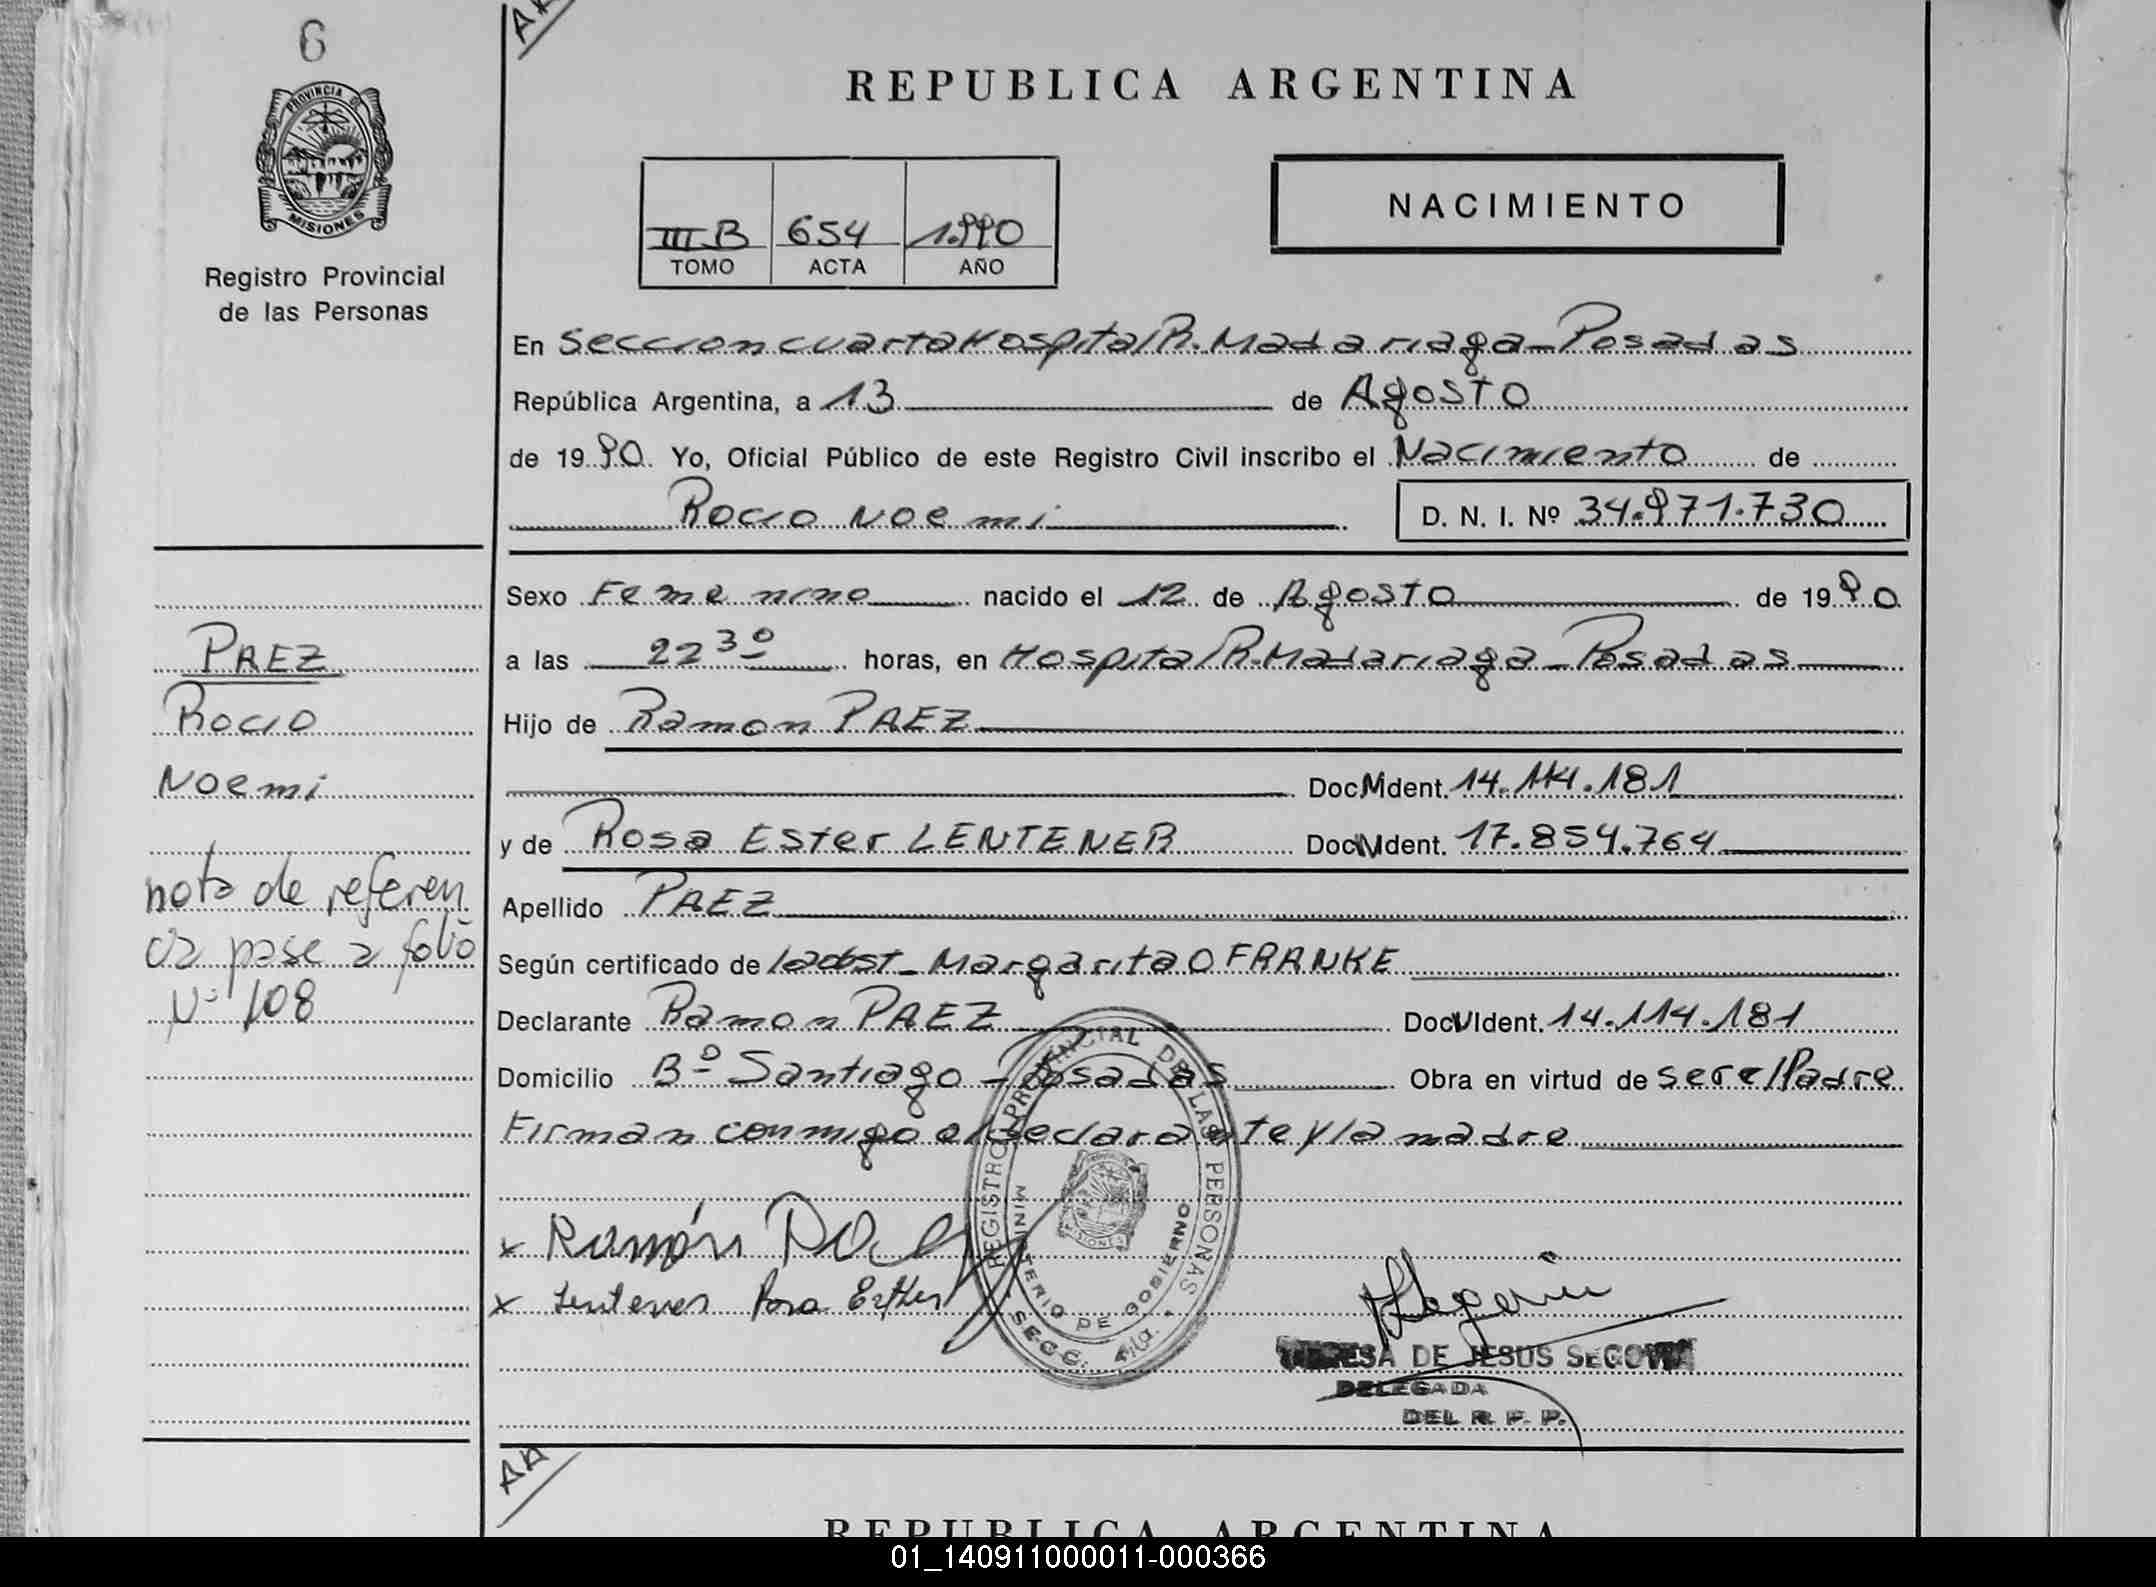 6
AA
PROVINCIA DE
MISIONES
Registro Provincial
de las Personas
REPUBLICA ARGENTINA
III B 654 1.990
TOMO ACTA AÑO
NACIMIENTO
En Seccion cuarta Hospital R. Madariaga - Posadas
República Argentina, a 13 de Agosto
de 1990. Yo, Oficial Público de este Registro Civil inscribo el Nacimiento de
Rocio Noemi
D. N. I. Nº 34.971.730
Sexo Femenino nacido el 12 de Agosto de 1990
a las 22 30 horas, en Hospital R. Madariaga - Posadas
Hijo de Ramon PAEZ
Doc. Ident. 14.114.181
y de Rosa Ester LENTENER Doc. Ident. 17.854.764
Apellido PAEZ
Según certificado de la obst - Margarita O FRANKE
Declarante Ramon PAEZ Doc. Ident. 14.114.181
Domicilio Bº Santiago - Posadas Obra en virtud de ser el Padre
Firman conmigo el declarante y la madre
x Ramón
x Lentener Rosa Esther
REGISTRO PROVINCIAL DE LAS PERSONAS
MINISTERIO DE GOBIERNO
MISIONES
SECC. 4ta.
TERESA DE JESUS SEGOVIA
DELEGADA
DEL R. P. P.
PAEZ
Rocio
Noemi
nota de referen
cia pase a folio
Nº 108
AA
REPUBLICA ARGENTINA
01_140911000011-000366